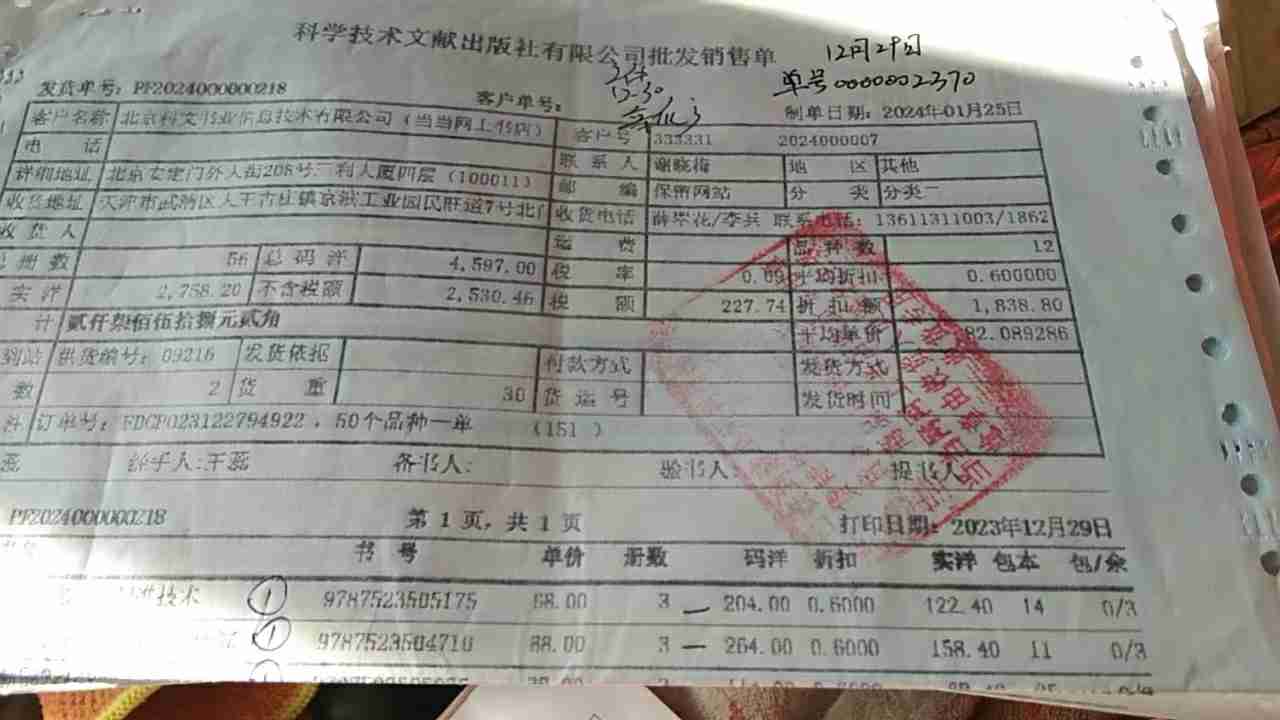 科学技术文献出版社有限公司批发销售单
12月29日
2件
12.30
单号0000002370
发货单号: PF2024000000218 客户单号: 制单日期: 2024年01月25日
客户名称 北京科文书业信息技术有限公司（当当网上书店） 客户号 333331 2024000007
电 话 联系人 谢晓梅 地 区 其他
详细地址 北京安定门外大街208号三利大厦四层（100011） 邮 编 保密网站 分 类 分类二
收货地址 天津市武清区大王古庄镇京滨工业园民旺道7号北门 收货电话 薛翠花/李兵 联系电话: 13611311003/1862
收货人 运 费 品种数 12
总册数 56 总码洋 4,597.00 税 率 0.09 平均折扣 0.600000
实洋 2,758.20 不含税额 2,530.46 税 额 227.74 折扣额 1,838.80
计 贰仟柒佰伍拾捌元贰角 平均单价 82.089286
到站 供货编号: 09216 发货依据 付款方式 发货方式
数 2 货 重 30 货运号 发货时间
订单号: FDCP023122794922 , 50个品种一单 （151 ）
蕊 经手人:王蕊 备书人: 验书人 提书人
PF2024000000218 第 1 页, 共 1 页 打印日期: 2023年12月29日
书 号 单价 册数 码洋 折扣 实洋 包本 包/余
技术 ① 9787523505175 68.00 3 204.00 0.6000 122.40 14 0/3
① 9787523504710 88.00 3 264.00 0.6000 158.40 11 0/3